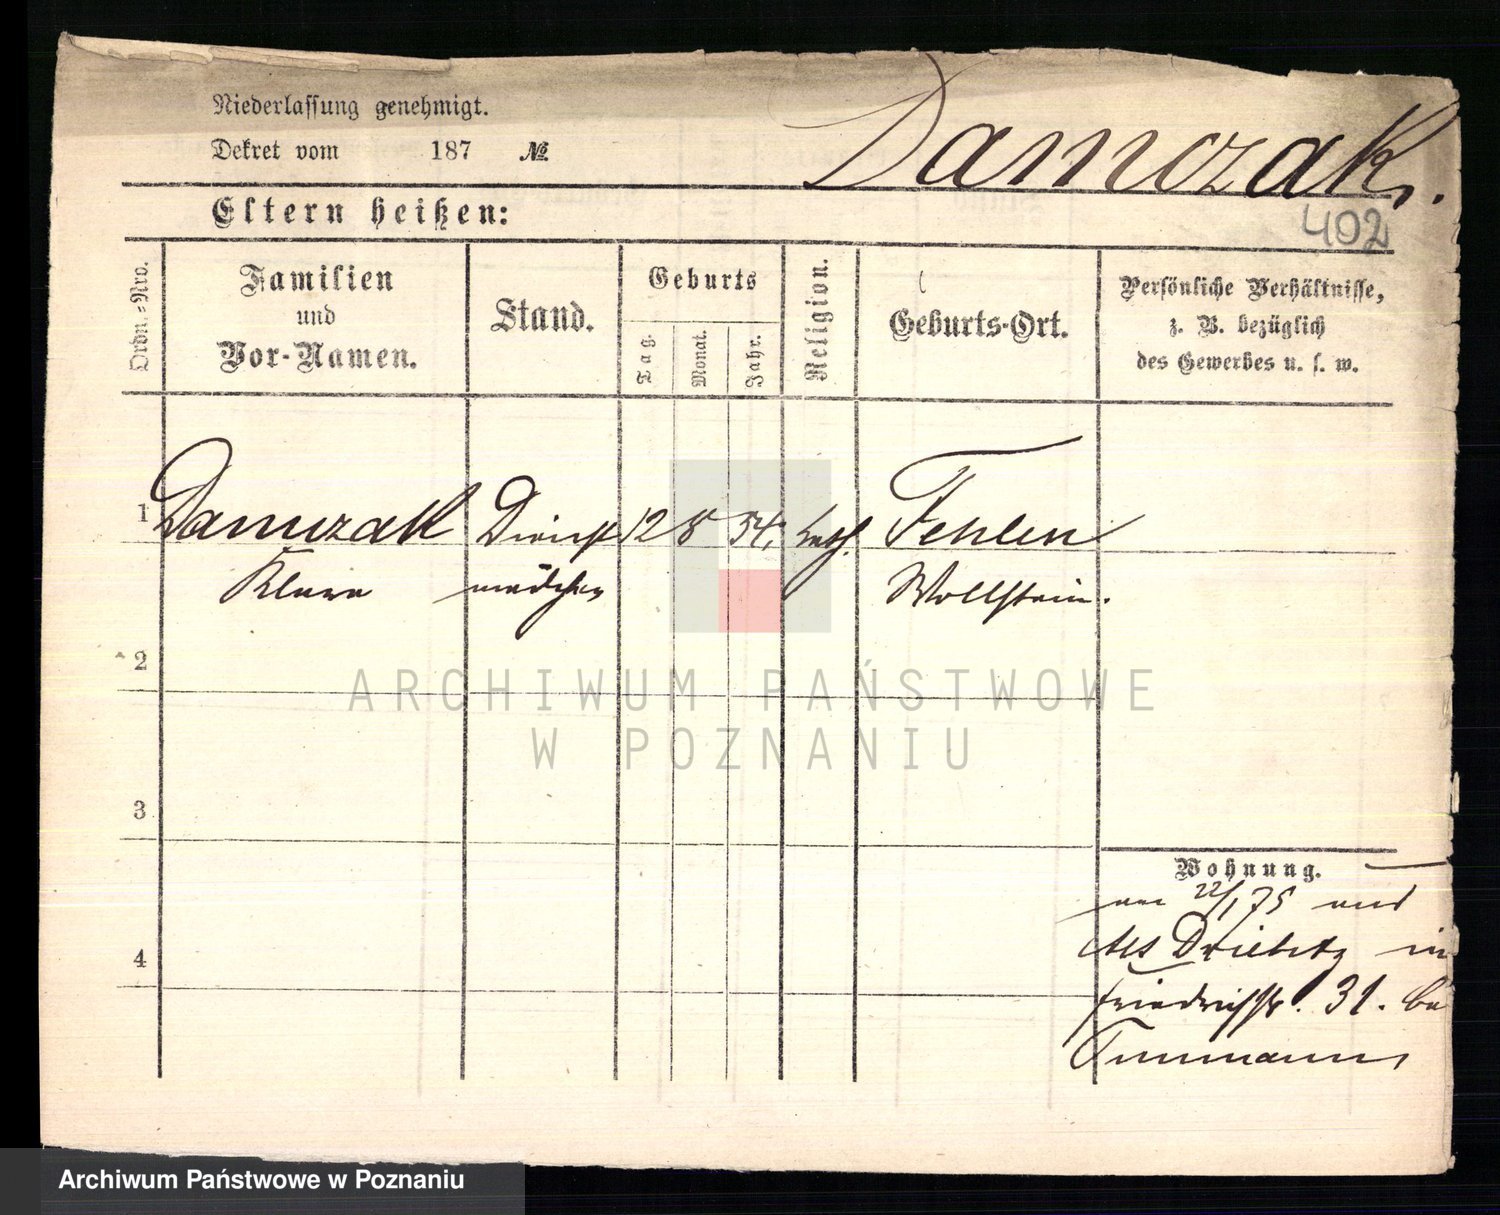 Niederlassung genehmigt.
Dekret vom 187 №
Damczak.
402
Eltern heißen:
Ordn.-Nro.
Familien
und
Vor-Namen.
Stand.
Geburts
Tag.
Monat.
Jahr.
Religion.
Geburts-Ort.
Persönliche Verhältnisse,
z. B. bezüglich
des Gewerbes u. s. w.
1 Damczak Dienst 12 8 54, kath. Fehlen
Klara mädchen Wollstein.
2
3
4
Wohnung.
am 22/1 75 aus
Driebitz in
Friedrichstr. 31. bei
ARCHIWUM PAŃSTWOWE
W POZNANIU
Archiwum Państwowe w Poznaniu